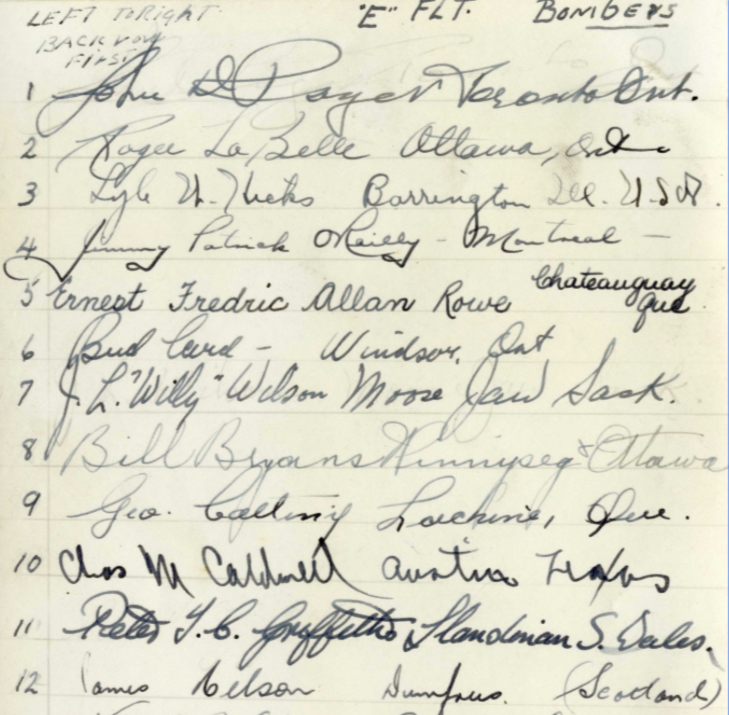 LEFT TO RIGHT "E" FLT. BOMBERS
BACK ROW
FIRST
1 John D Toronto Ont.
2 Roger La Belle Ottawa, Ont
3 Lyle Hicks Barrington Ill. U.S.A.
4 Jimmy Patrick O'Reilly - Montreal -
5 Ernest Fredric Allan Rowe Chateauguay Que
6 Bud - Windsor, Ont
7 J. L. "Willy" Wilson Moose Jaw Sask.
8 Bill Bryans Winnipeg & Ottawa
9 Geo. Lachine, Que.
10 Chas M Caldwell Austin Texas
11 Peter Griffiths S. Wales.
12 James Dumfries. (Scotland)